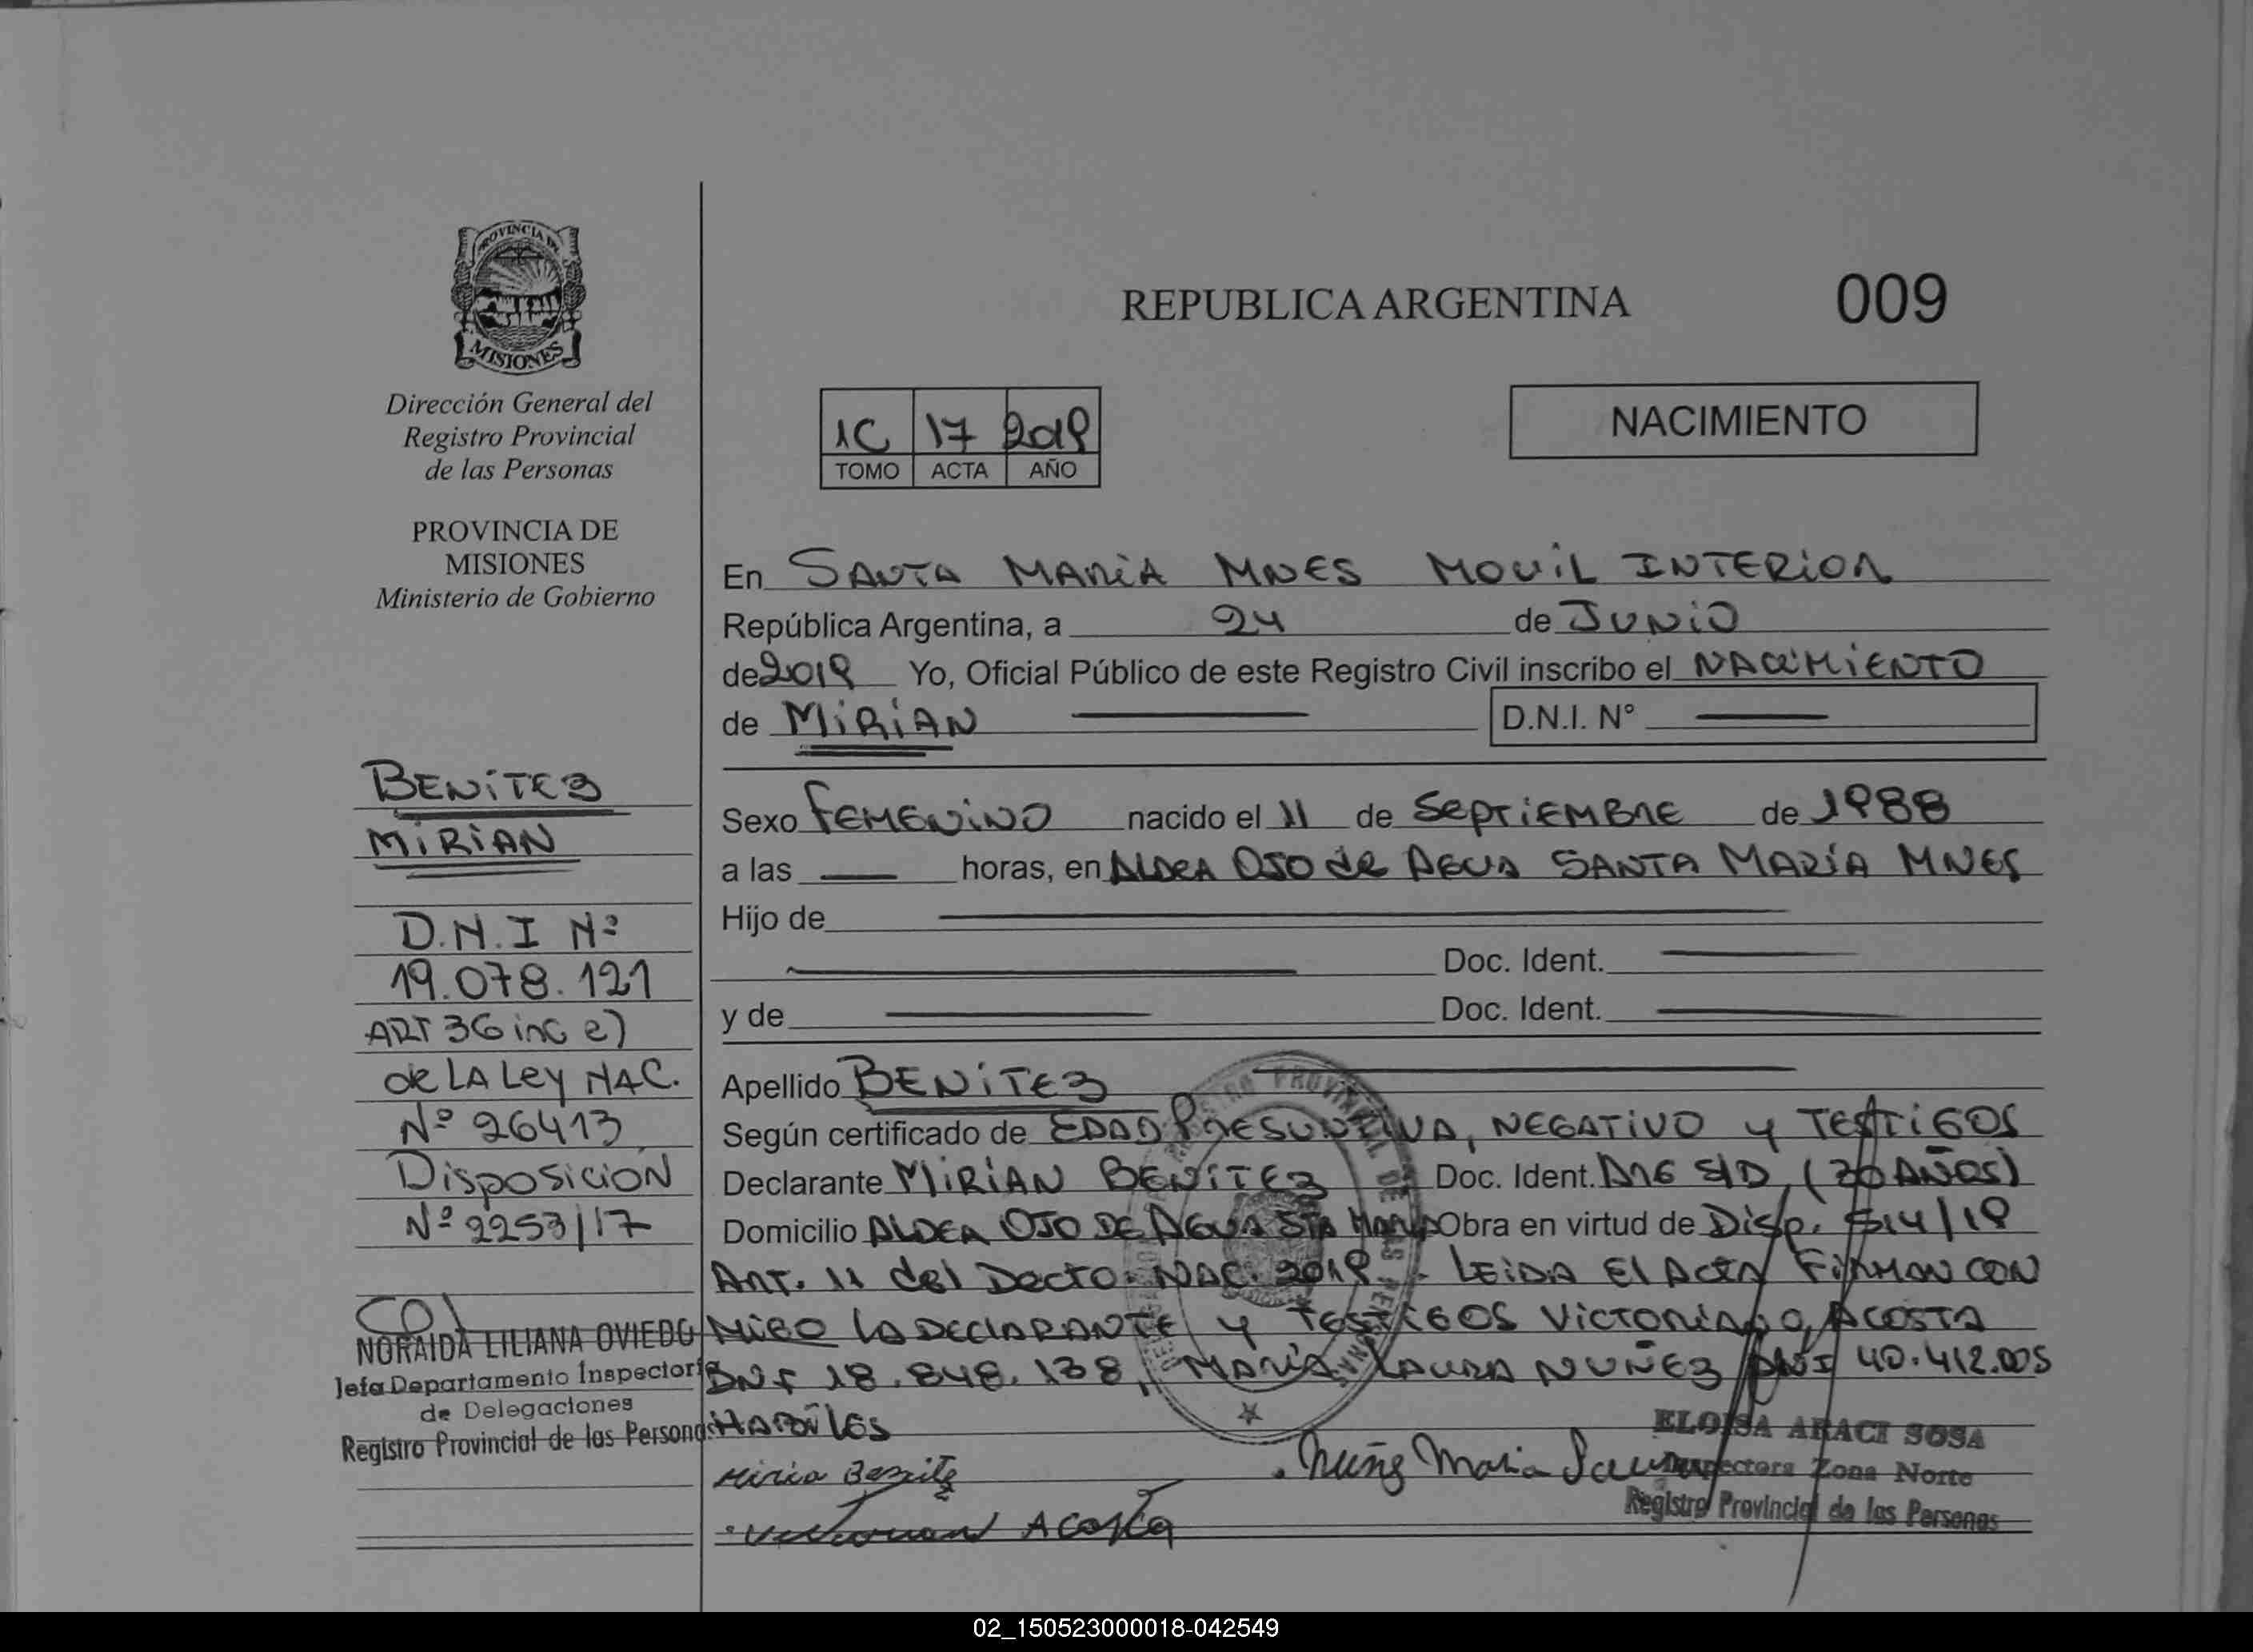 PROVINCIA DE
MISIONES
Dirección General del
Registro Provincial
de las Personas
PROVINCIA DE
MISIONES
Ministerio de Gobierno
BENiTEZ
MiRiAN
D.N.I Nº
19.078.121
ART 36 inc e)
de LA Ley NAC.
Nº 26413
DisposiciÓN
Nº 2253/17
NORAIDA LILIANA OVIEDO
Jefa Departamento Inspector
de Delegaciones
Registro Provincial de las Personas
REPUBLICA ARGENTINA 009
NACIMIENTO
1C 17 2019
TOMO ACTA AÑO
En SANTA MARiA MNES MOViL INTERiOR
República Argentina, a 24 de JUNiO
de 2019 Yo, Oficial Público de este Registro Civil inscribo el NACiMiENTO
de MiRiAN D.N.I. N°
Sexo FEMENiNO nacido el 11 de SEPTiEMBRE de 1988
a las horas, en ALDEA OJO de AGUA SANTA MARÍA MNES
Hijo de
Doc. Ident.
y de Doc. Ident.
Apellido BENiTEZ
Según certificado de EDAD PRESUNTIVA, NEGATiVO y TESTiGOS
Declarante MiRiAN BENiTEZ Doc. Ident. ARG S/D (30 AÑOS)
Domicilio ALDEA OJO DE AGUA STA MARIA Obra en virtud de Disp. 514/19
ART. 11 del Decto. NAC. 2019. LEiDA El ACTA FiRMAN CON
MiGO LA DECLARANTE y TESTiGOS VicTORiANO ACOSTA
DNI 18.848.138, MARíA LAURA NUÑEZ DNI 40.412.005
HABiLES
Miria Benite
Nuñe Maria Laura
Victorian Acosta
ELOISA ARACI SOSA
Inspectora Zona Norte
Registro Provincial de las Personas
02_150523000018-042549